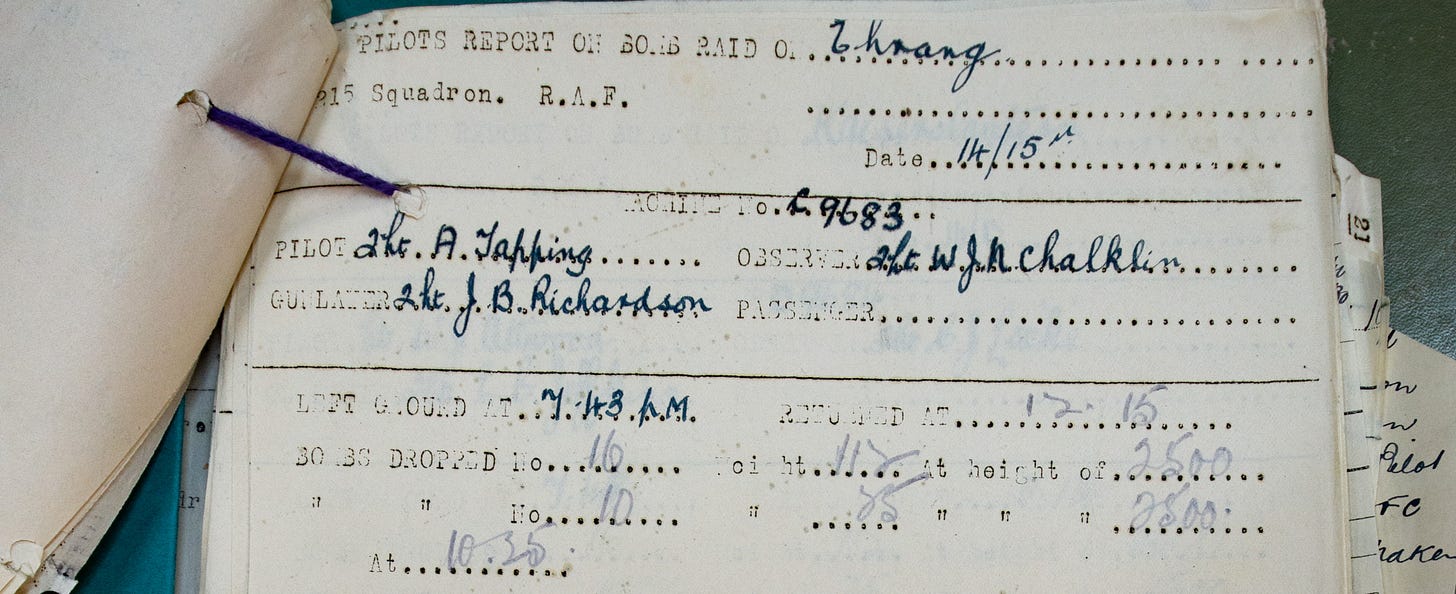 PILOTS REPORT ON BOMB RAID ON. Ehrang
215 Squadron. R.A.F.
Date 14/15th
MACHINE No. C.9683
PILOT 2Lt. A. Tapping OBSERVER 2Lt. W.J.N. Chalklin
GUNLAYER 2Lt. J.B. Richardson PASSENGER
LEFT GROUND AT 7.43 P.M. RETURNED AT 12.15
BOMBS DROPPED No. 16 Weight 112 At height of 2500
" " No. 10 " 25 " " " 2500
At 10.35
21
Pilot
FC